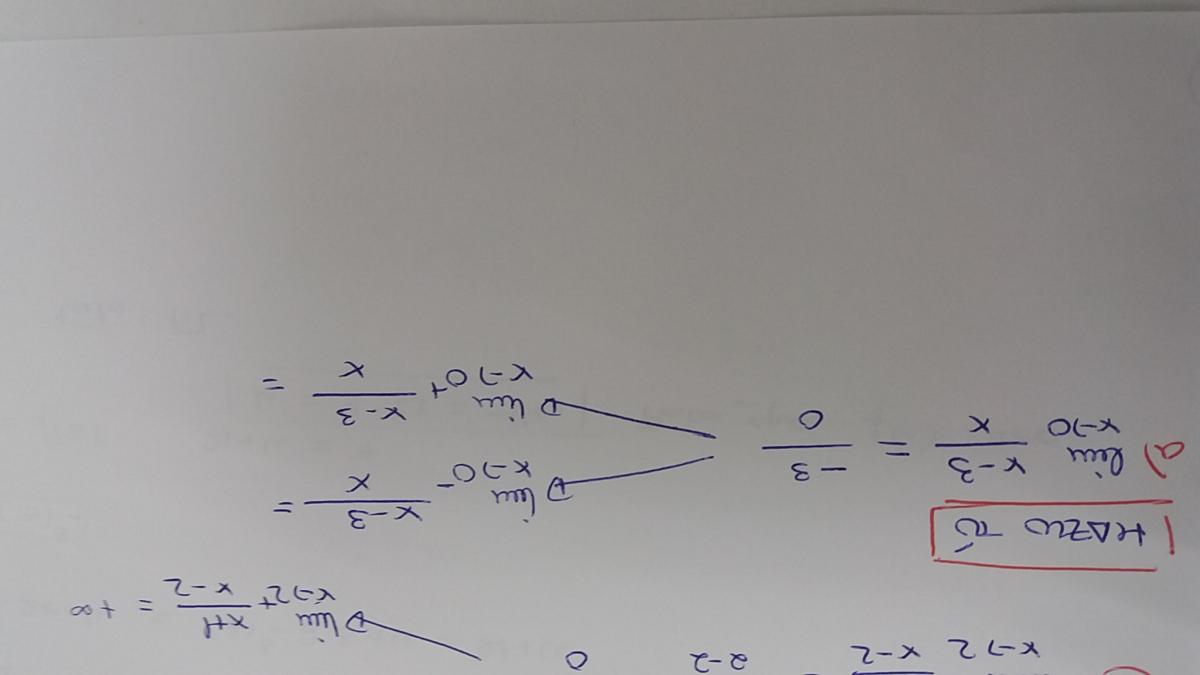 x→2 x-2 2-2 0
lim x→2⁺ x+1/x-2 = +∞
HAZLO TÚ
a) lim x→0 x-3/x = -3/0
lim x→0⁻ x-3/x =
lim x→0⁺ x-3/x =